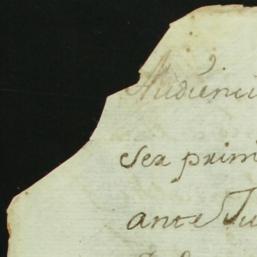 Audienci
ser prim
ante Ju